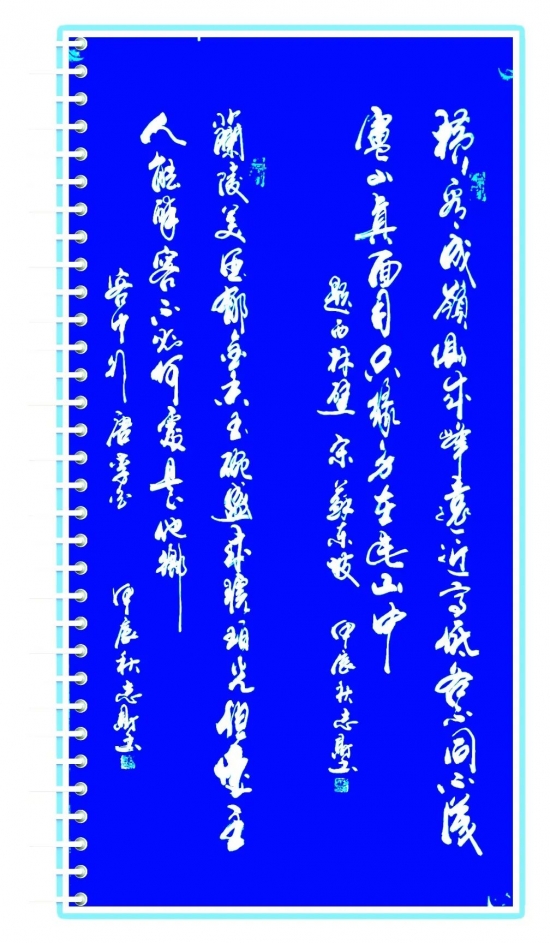 横看成嶺側成峰遠近高低各不同不識
廬山真面目只緣身在此山中
題西林壁 宋 蘇東坡 甲辰秋志財书
蘭陵美酒郁金香玉碗盛來琥珀光但使主
人能醉客不知何處是他鄉
客中行 唐 李白 甲辰秋志財书